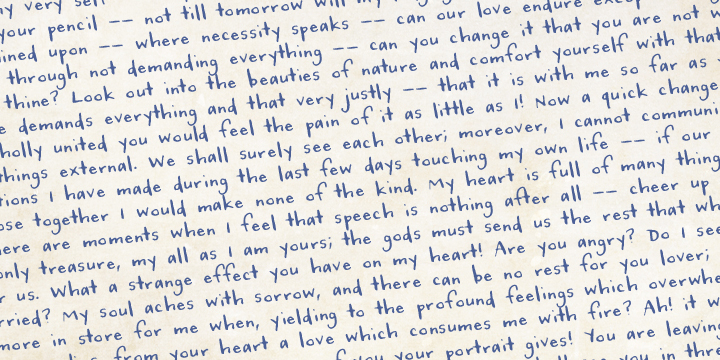 my very self
your pencil –– not till tomorrow will my
ined upon –– where necessity speaks –– can our love endure except
through not demanding everything –– can you change it that you are not w
thine? Look out into the beauties of nature and comfort yourself with that
e demands everything and that very justly –– that it is with me so far as
holly united you would feel the pain of it as little as I! Now a quick change
things external. We shall surely see each other; moreover, I cannot communi
tions I have made during the last few days touching my own life –– if our
ose together I would make none of the kind. My heart is full of many thing
ere are moments when I feel that speech is nothing after all –– cheer up
only treasure, my all as I am yours; the gods must send us the rest that wh
r us. What a strange effect you have on my heart! Are you angry? Do I see
rried? My soul aches with sorrow, and there can be no rest for you lover;
more in store for me when, yielding to the profound feelings which overwhe
from your heart a love which consumes me with fire? Ah! it w
you your portrait gives! You are leavin
you in thre